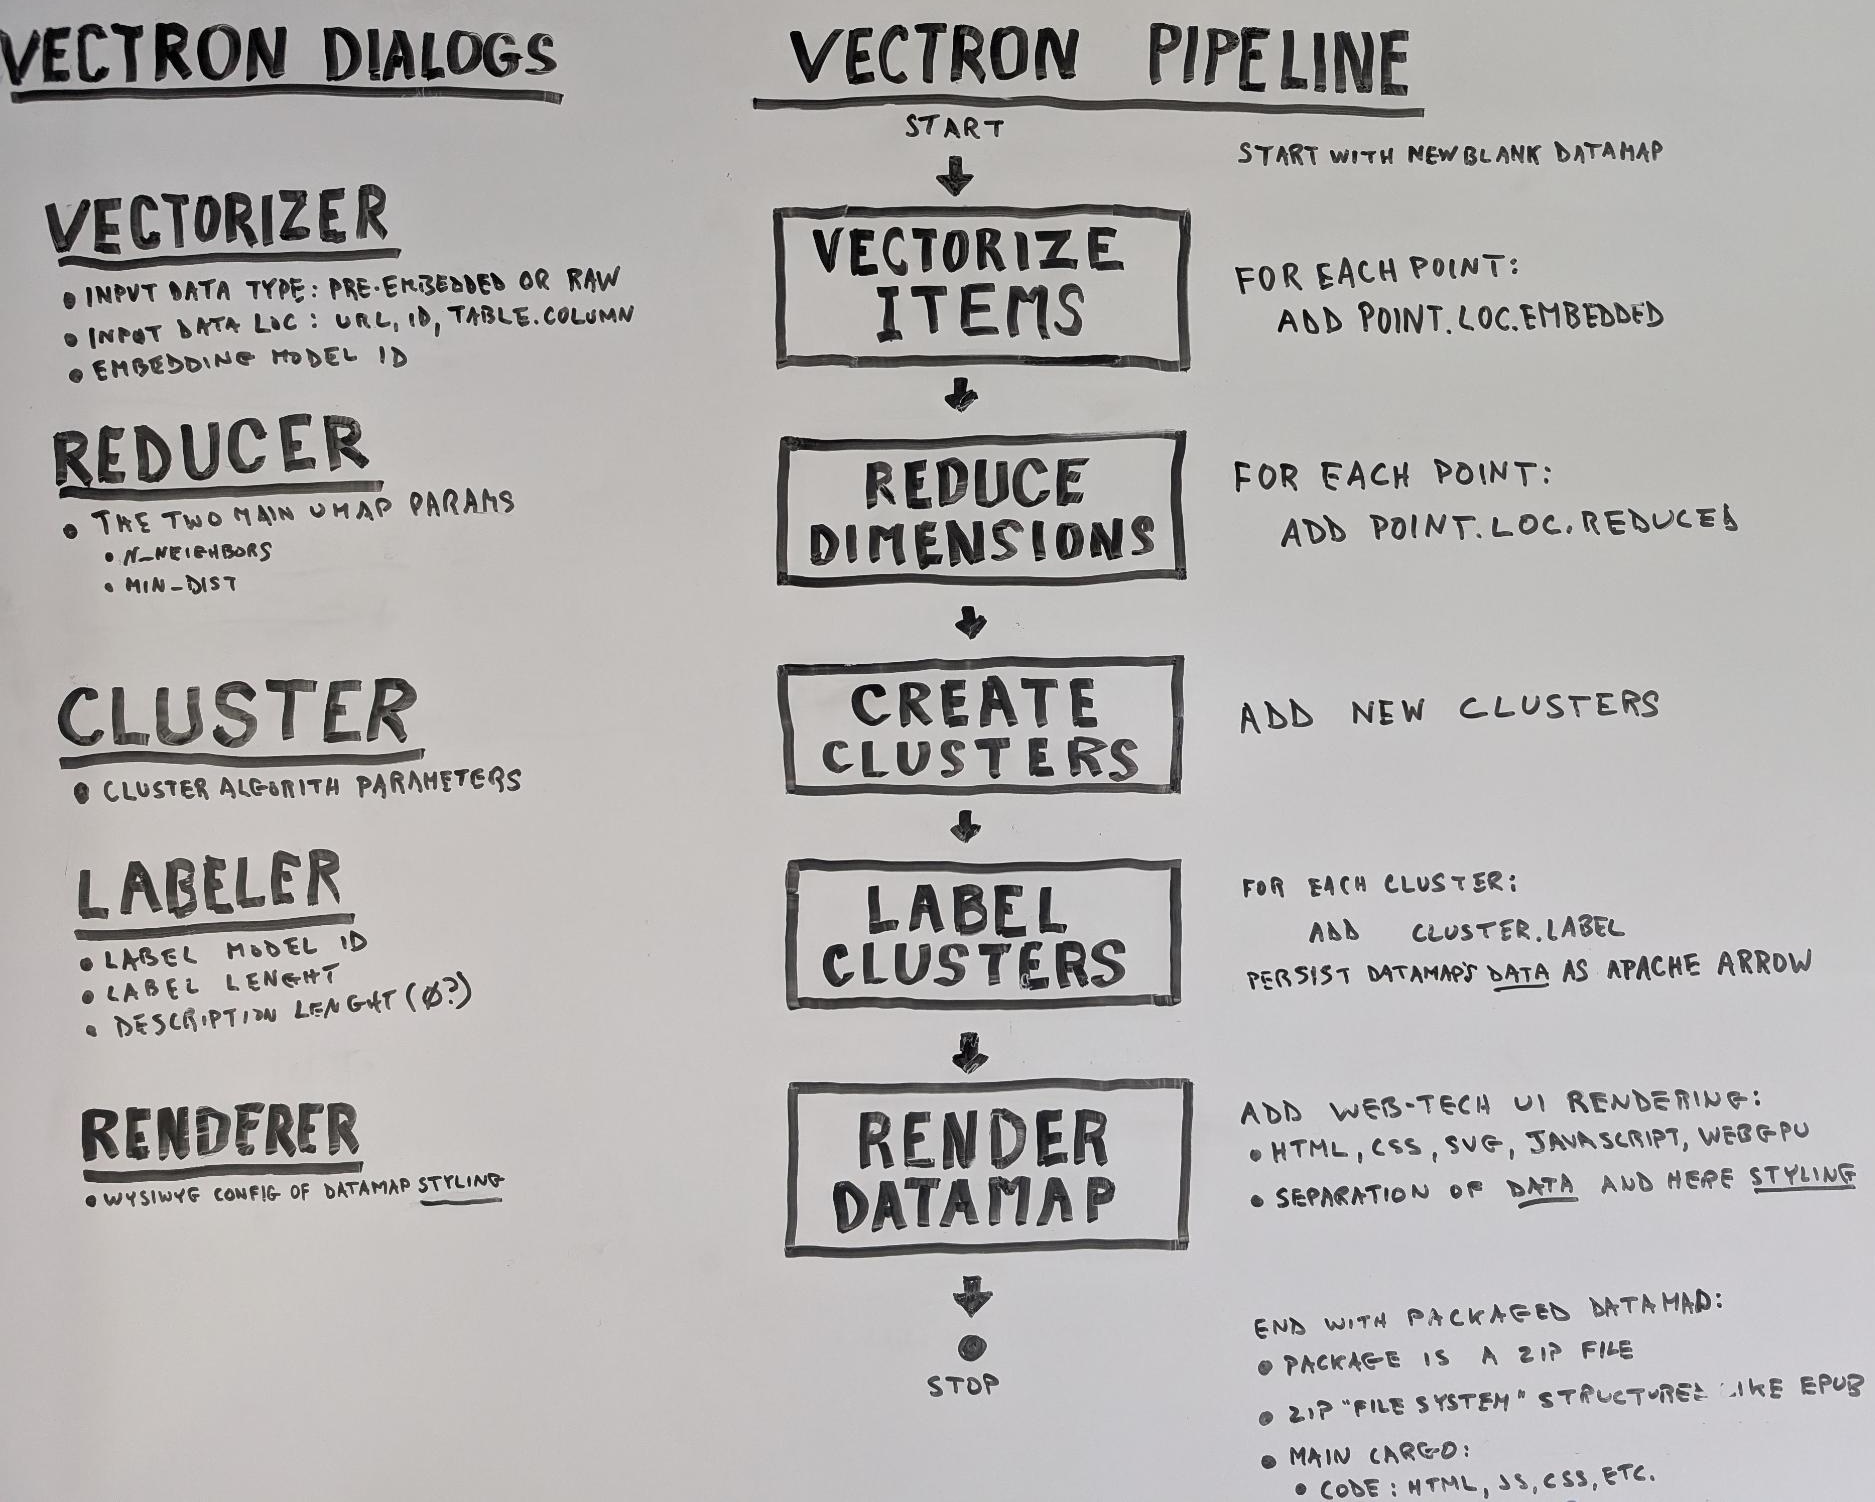 VECTRON DIALOGS
VECTORIZER
• INPUT DATA TYPE: PRE-EMBEDDED OR RAW
• INPUT DATA LOC: URL, ID, TABLE.COLUMN
• EMBEDDING MODEL ID
REDUCER
• THE TWO MAIN UMAP PARAMS
• N_NEIGHBORS
• MIN_DIST
CLUSTER
• CLUSTER ALGORITH PARAMETERS
LABELER
• LABEL MODEL ID
• LABEL LENGHT
• DESCRIPTION LENGHT (Ø?)
RENDERER
• WYSIWYG CONFIG OF DATAMAP STYLING
VECTRON PIPELINE
START
START WITH NEW BLANK DATAMAP
VECTORIZE
ITEMS
FOR EACH POINT:
ADD POINT.LOC.EMBEDDED
REDUCE
DIMENSIONS
FOR EACH POINT:
ADD POINT.LOC.REDUCED
CREATE
CLUSTERS
ADD NEW CLUSTERS
LABEL
CLUSTERS
FOR EACH CLUSTER:
ADD CLUSTER.LABEL
PERSIST DATAMAP'S DATA AS APACHE ARROW
RENDER
DATAMAP
ADD WEB-TECH UI RENDERING:
• HTML, CSS, SVG, JAVASCRIPT, WEBGPU
• SEPARATION OF DATA AND HERE STYLING
STOP
END WITH PACKAGED DATAMAP:
• PACKAGE IS A ZIP FILE
• ZIP "FILE SYSTEM" STRUCTURED LIKE EPUB
• MAIN CARGO:
• CODE: HTML, JS, CSS, ETC.